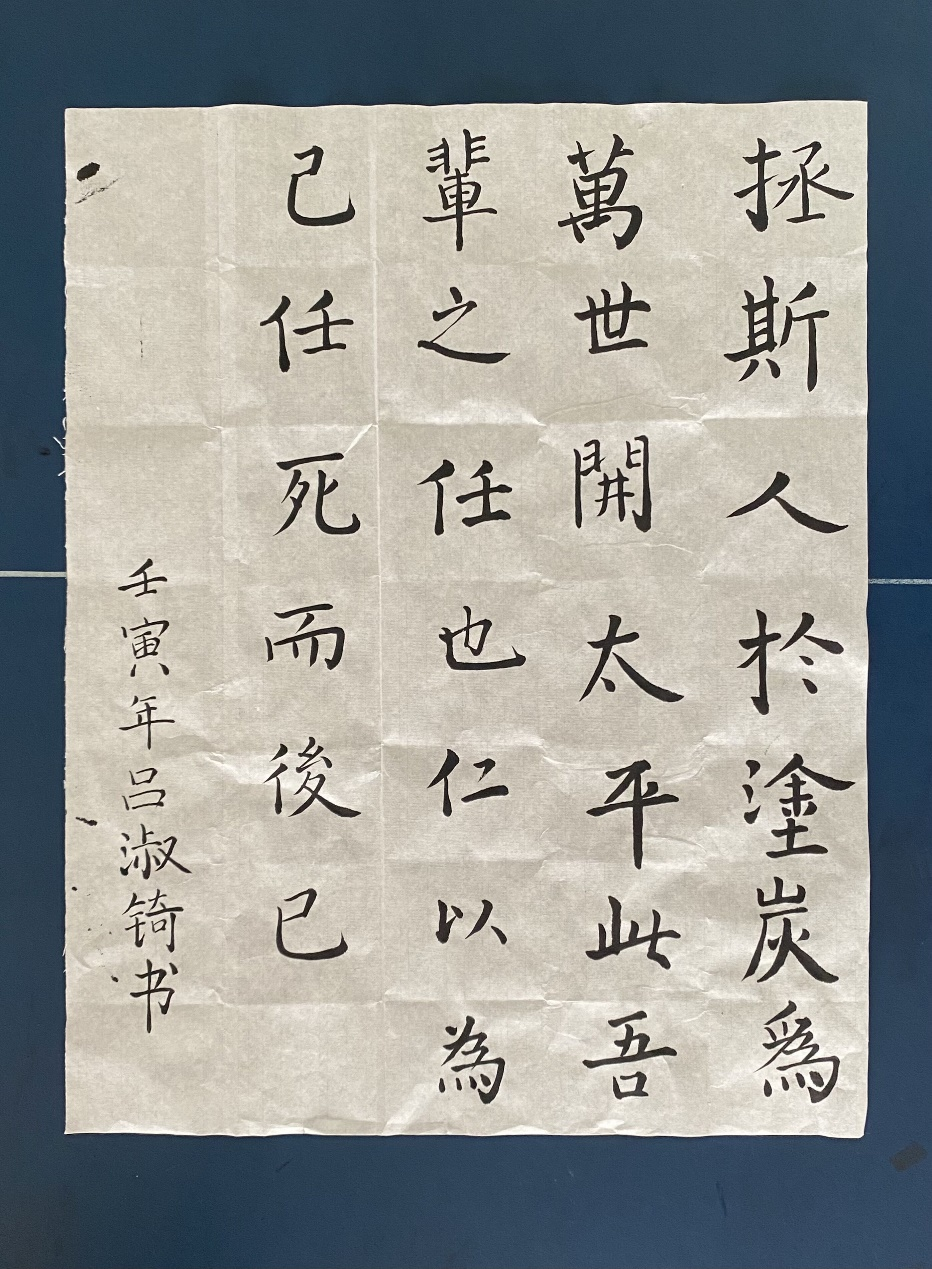 拯斯人於塗炭爲
萬世開太平此吾
輩之任也仁以為
己任死而後已
壬寅年吕淑锜书